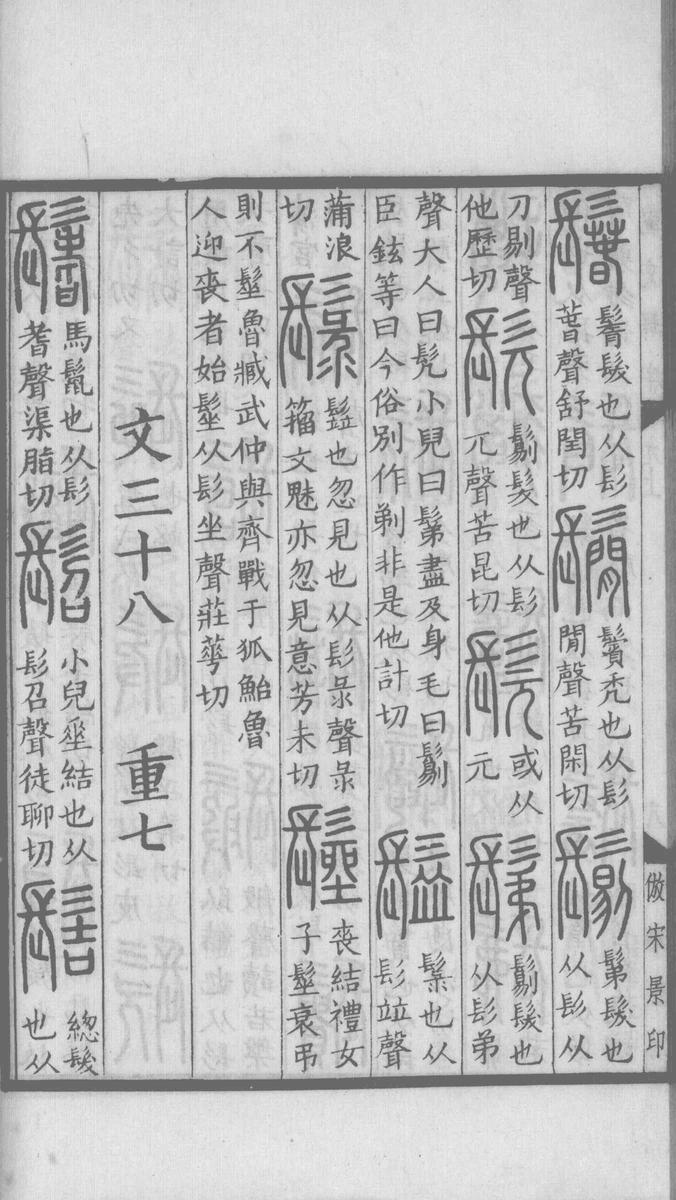 鬊鬌髮也从髟萅聲舒閏切鬜鬢秃也从髟閒聲苦閑切𩮜鬀髮也从髟从
刀剔聲他歷切髡𩮜髮也从髟兀聲苦昆切髨或从元鬀𩮜髮也从髟弟
聲大人曰髡小兒曰鬀盡及身毛曰𩮜臣鉉等曰今俗別作剃非是他計切䰃也从髟竝聲
蒲浪切䰄䰃也忽見也从髟彔聲彔籀文魅亦忽見意芳未切髽喪結禮女子髽衰弔
則不髽魯臧武仲與齊戰于狐鮐魯人迎喪者始髽从髟坐聲莊華切
文三十八 重七
鬐馬鬣也从髟耆聲渠脂切髫小兒垂結也从髟召聲徒聊切髻總髮也从
倣宋景印